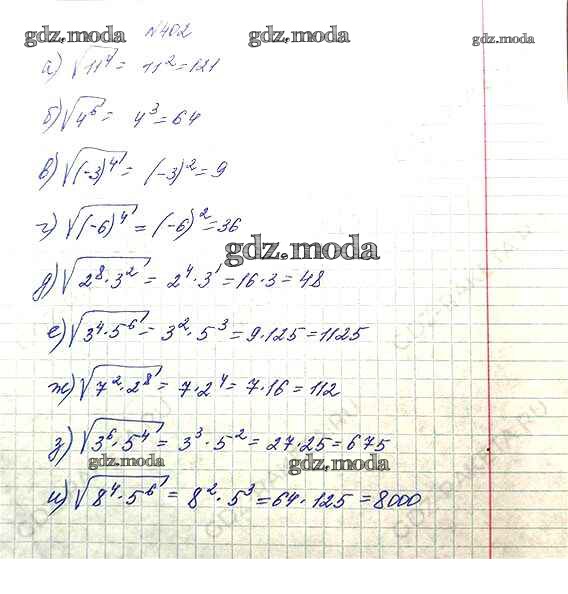 №402
gdz.moda gdz.moda gdz.moda
а) √11⁴ = 11² = 121
б) √4⁶ = 4³ = 64
в) √(-3)⁴ = (-3)² = 9
г) √(-6)⁴ = (-6)² = 36
gdz.moda
д) √2⁸·3² = 2⁴·3¹ = 16·3 = 48
е) √3⁴·5⁶ = 3²·5³ = 9·125 = 1125
ж) √7²·2⁸ = 7·2⁴ = 7·16 = 112
з) √3⁶·5⁴ = 3³·5² = 27·25 = 675
gdz.moda gdz.moda
и) √8⁴·5⁶ = 8²·5³ = 64·125 = 8000